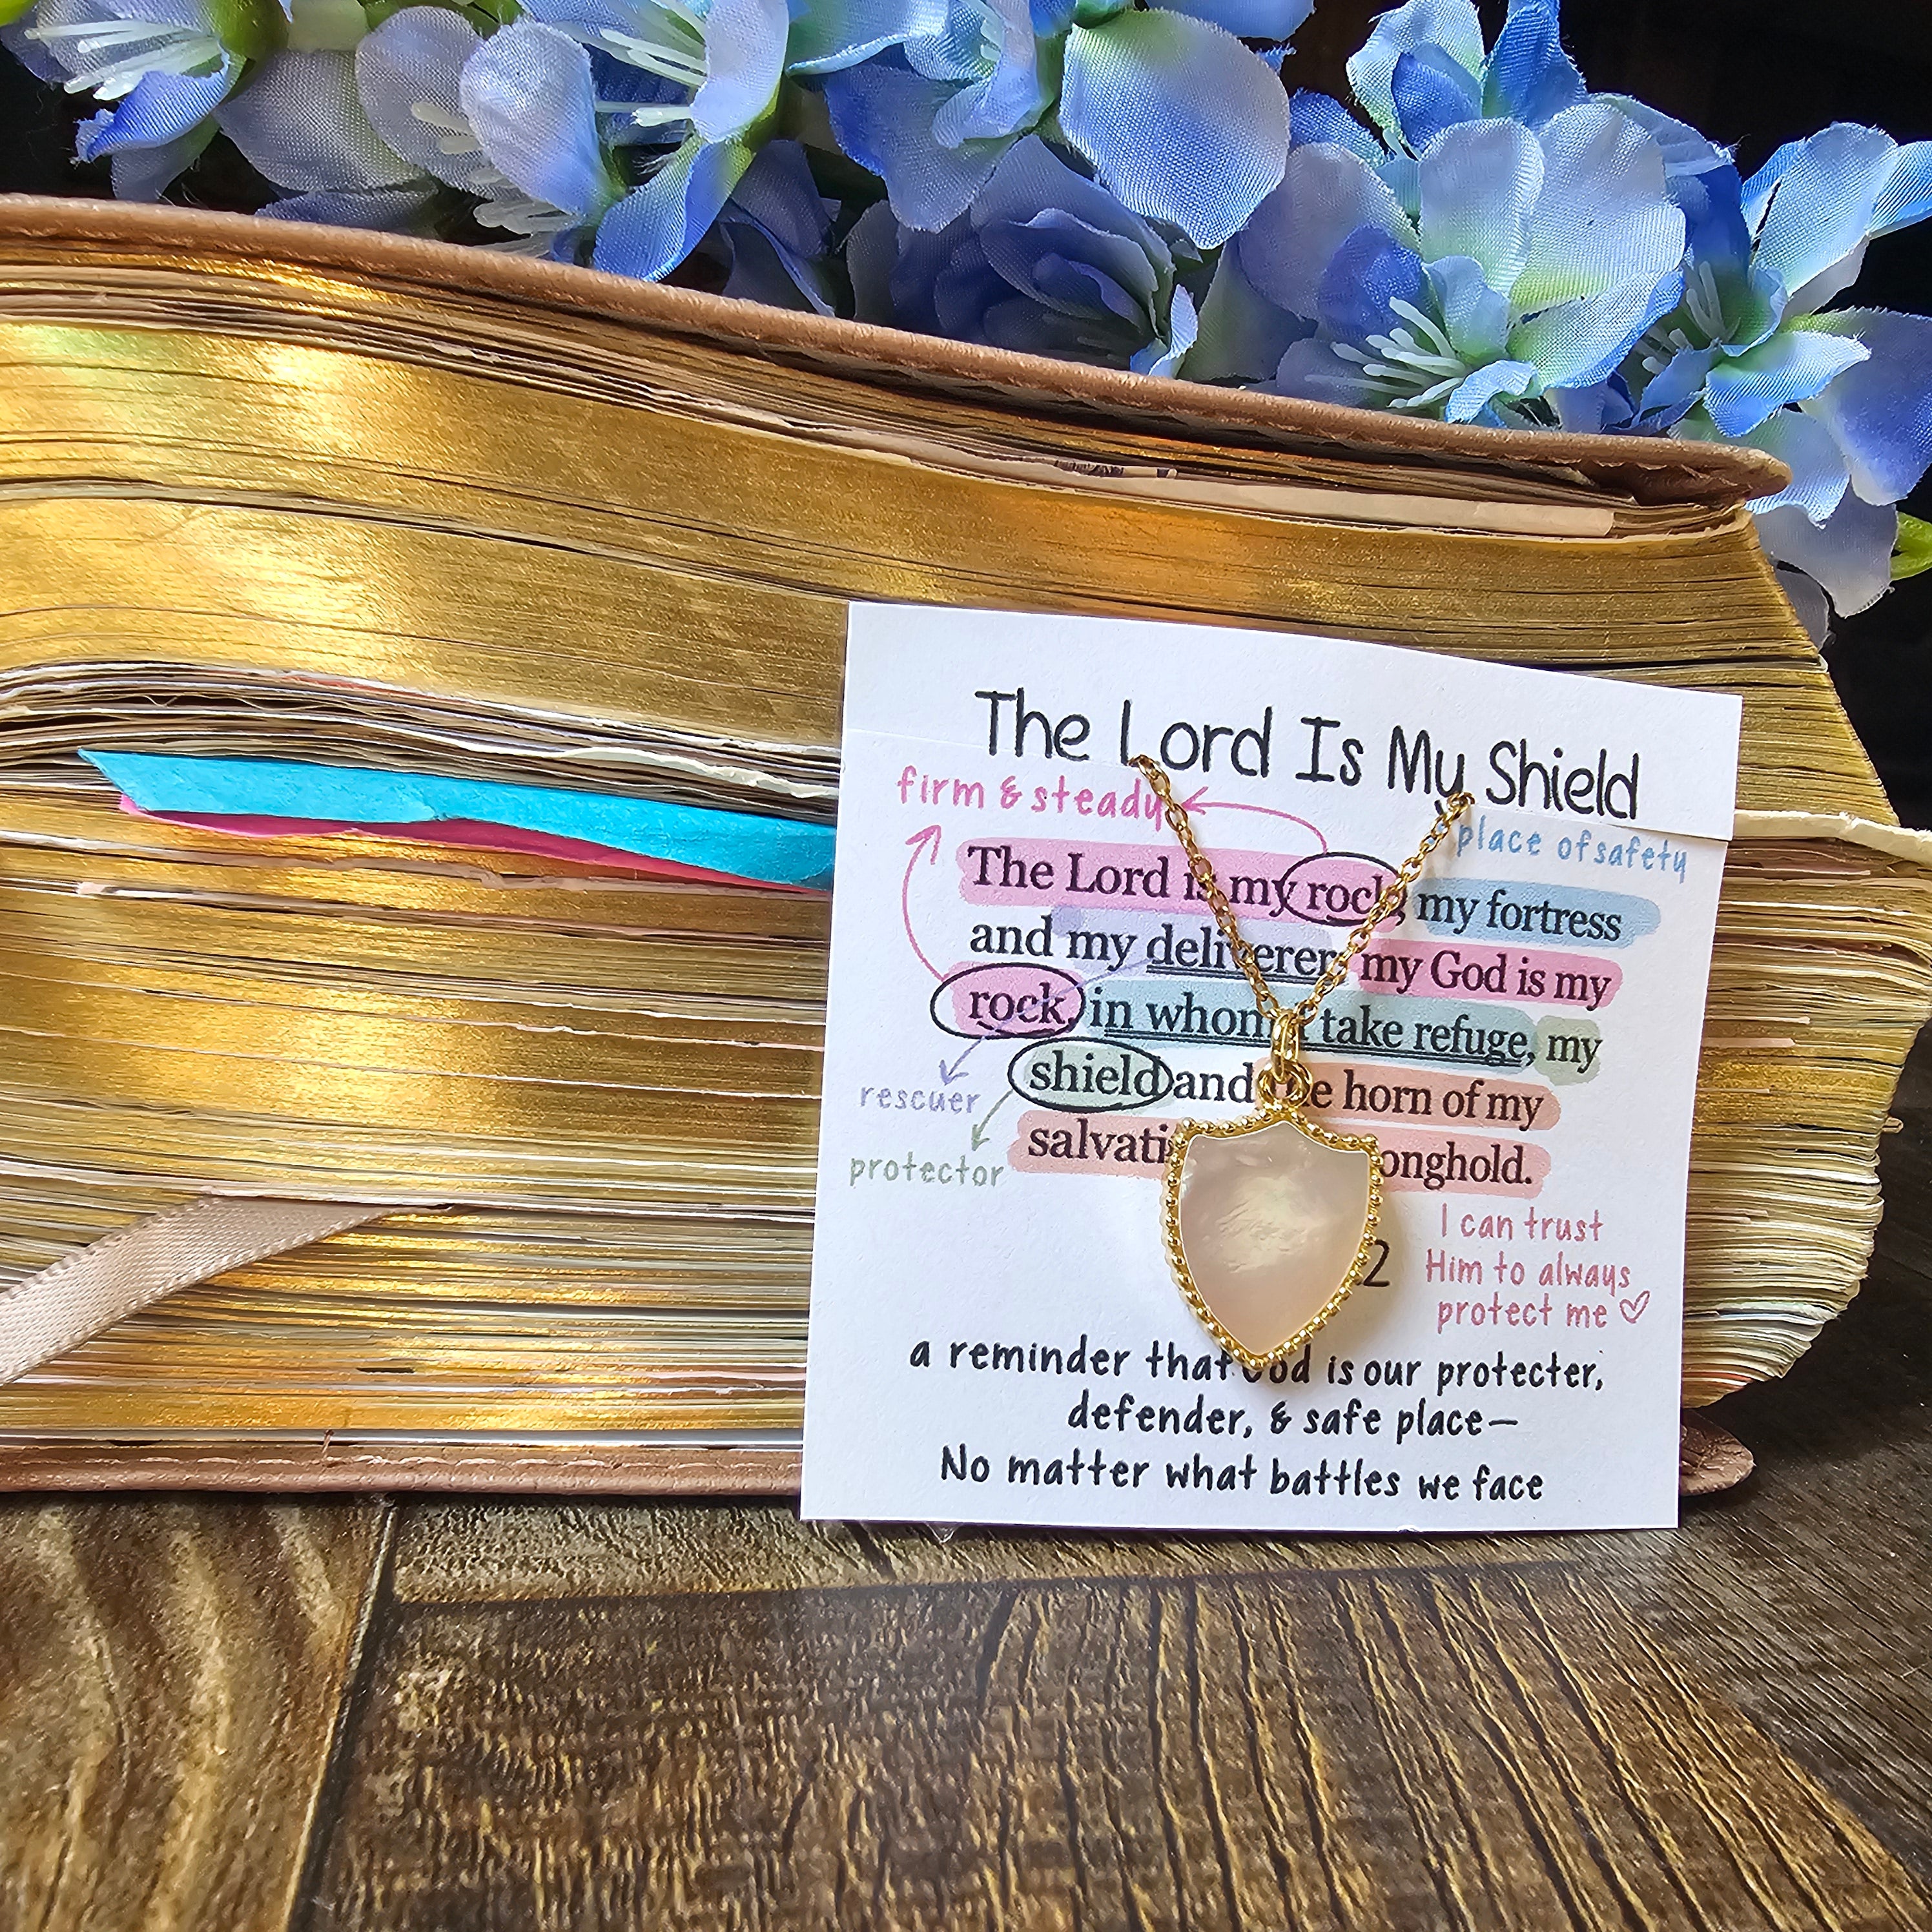 The Lord Is My Shield
firm & steady
place of safety
The Lord is my rock, my fortress
and my deliverer, my God is my
rock, in whom take refuge, my
shield and horn of my
rescuer
protector
2
I can trust
Him to always
protect me
a reminder that God is our protecter,
defender, & safe place—
No matter what battles we face